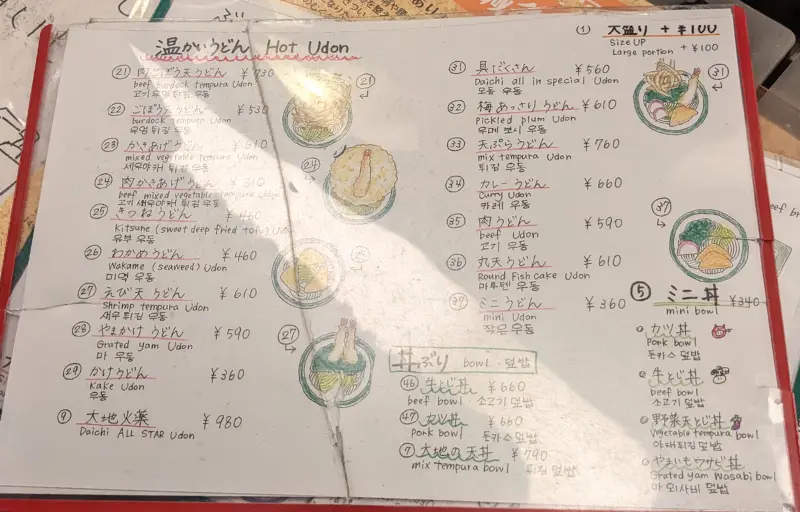 温かいうどん Hot Udon
21 肉ごぼう天うどん ¥730
beef burdock tempura Udon
고기 우엉 튀김 우동
21
22 ごぼう天うどん ¥530
burdock tempura Udon
우엉 튀김 우동
23 かきあげうどん ¥610
mixed vegetable tempura Udon
새우야채 튀김 우동
24 肉かきあげうどん
beef mixed vegetable tempura Udon
고기 새우야채 튀김 우동
24
25 きつねうどん ¥460
Kitsune (sweet deep fried tofu) Udon
유부 우동
25
26 わかめうどん ¥460
Wakame (seaweed) Udon
미역 우동
27 えび天うどん ¥610
Shrimp tempura Udon
새우 튀김 우동
27
28 やまかけうどん ¥590
Grated yam Udon
마 우동
29 かけうどん ¥360
Kake Udon
우동
9 大地火薬 ¥980
Daichi ALL STAR Udon
(1) 大盛り + ¥100
Size UP
Large portion + ¥100
31 具だくさん ¥560
Daichi all in special Udon
모둠 우동
31
32 梅あっさりうどん ¥610
Pickled plum Udon
우메보시 우동
33 天ぷらうどん ¥760
mix tempura Udon
튀김 우동
34 カレーうどん ¥660
Curry Udon
카레 우동
35 肉うどん ¥590
beef Udon
고기 우동
36 丸天うどん ¥610
Round Fish Cake Udon
마루텐 우동
37 ミニうどん ¥360
mini Udon
작은 우동
37
丼ぶり bowl・덮밥
46 牛とじ丼 ¥660
beef bowl・소고기 덮밥
47 カツ丼 ¥660
pork bowl 돈카스 덮밥
7 大地の天丼 ¥790
mix tempura bowl 튀김 덮밥
5 ミニ丼 ¥340
mini bowl
カツ丼
Pork bowl
돈카스 덮밥
牛とじ丼
beef bowl
소고기 덮밥
野菜天とじ丼
Vegetable tempura bowl
야채튀김 덮밥
やまいもワサビ丼
Grated yam Wasabi bowl
마 와사비 덮밥